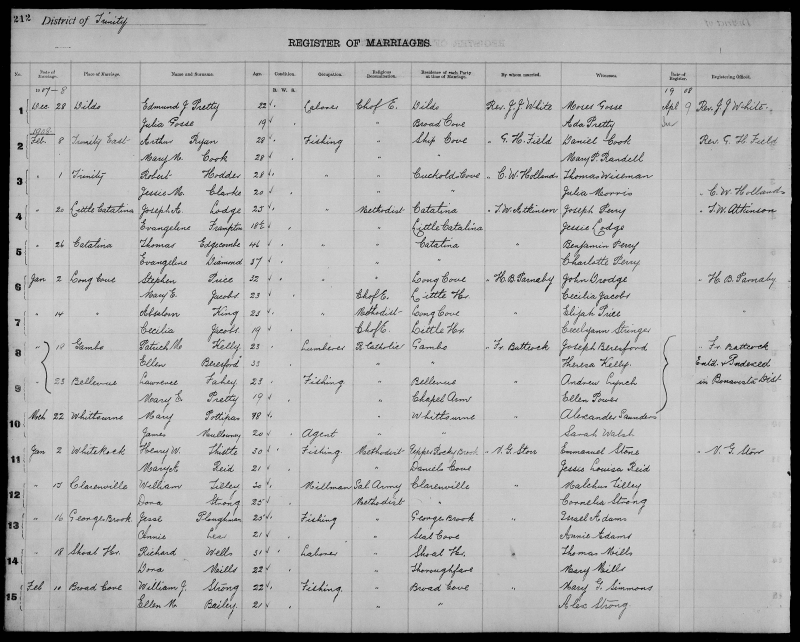 212 District of Trinity
REGISTER OF MARRIAGES.
No. Date of Marriage. Place of Marriage. Name and Surname. Age. Condition. Occupation. Religious Denomination. Residence of each Party at time of Marriage. By whom married. Witnesses. Date of Register. Registering Official.
B. W. S.
1907-8 1908
1 Dec 28 Dildo Edmund J Pretty 22 Laborer Ch of E. Dildo Rev. J. J White Moses Gosse Apl 9 Rev. J. J White
Julia Gosse 19 " Broad Cove Ada Pretty
1908
2 Feb 8 Trinity East Arthur Ryan 28 Fishing " Ship Cove " G. H. Field Daniel Cook Rev. G. H Field
Mary M. Cook 28 " " Mary P. Randell
3 " 1 Trinity Robert Hodder 28 " " Cuckolds Cove " C. W Hollands Thomas Wiseman
Jessie M. Clarke 20 " " Julia Morris " C. W. Hollands
4 " 20 Little Catalina Joseph A. Lodge 25 " Methodist Catalina " T. W. Atkinson Joseph Perry " T. W. Atkinson
Evangeline Frampton " Little Catalina Jessie Lodge
5 " 26 Catalina Thomas Edgecombe 46 " " Catalina " Benjamin Perry
Evangeline Diamond 37 " " Charlotte Perry
6 Jan 2 Long Cove Stephen Price 32 " " Long Cove " H. B. Parnaby John Drodge " H. B. Parnaby
Mary E. Jacobs 23 Ch of E. Little Hr. Cecilia Jacobs
7 " 14 " Absalom King 25 " Methodist Long Cove " Elijah Price "
Cecilia Jacobs 19 Ch of E. Little Hr Stringer
8 " Gambo Patrick M. Kelly 23 Lumberer R. Catholic Gambo " Fr. Battcock Joseph Beresford " Fr. Battcock
Ellen Beresford 33 " " Theresa Kelly Entd. & Indexed
9 " 23 Bellevue Lawrence Fahey 23 Fishing " Bellevue " Andrew Lynch in Bonavista Dist
Mary E. Pretty 19 " Chapel Arm Ellen Power
10 Mch 22 Whitbourne Mary Pottipas " Whitbourne " Alexander Saunders
James Mullowney 20 Agent " " Sarah Walsh
11 Jan 2 White Rock Henry W. Thistle 30 Fishing Methodist Brook " V. G. Storr Emmanuel Stone " V. G. Storr
Mary A. Reid 21 " Daniels Cove Jessie Louisa Reid
12 " Clarenville William Tilley 30 Millman Sal. Army Clarenville " Malchus Tilley
Dora Strong 25 Methodist " Cornelia Strong
13 " 16 Georges Brook Jesse Ploughman 25 Fishing " Georges Brook " Israel Adams
Annie 21 " Seal Cove Annie Adams
14 " 18 Shoal Hr. Richard Wells 31 Laborer " Shoal Hr. " Thomas Mills
Dora Mills 22 " Thoroughfare Mary Mills
15 Feb 10 Broad Cove William J. Strong 22 Fishing " Broad Cove " Mary G. Simmons
Ellen M. Bailey 21 " " Alex Strong